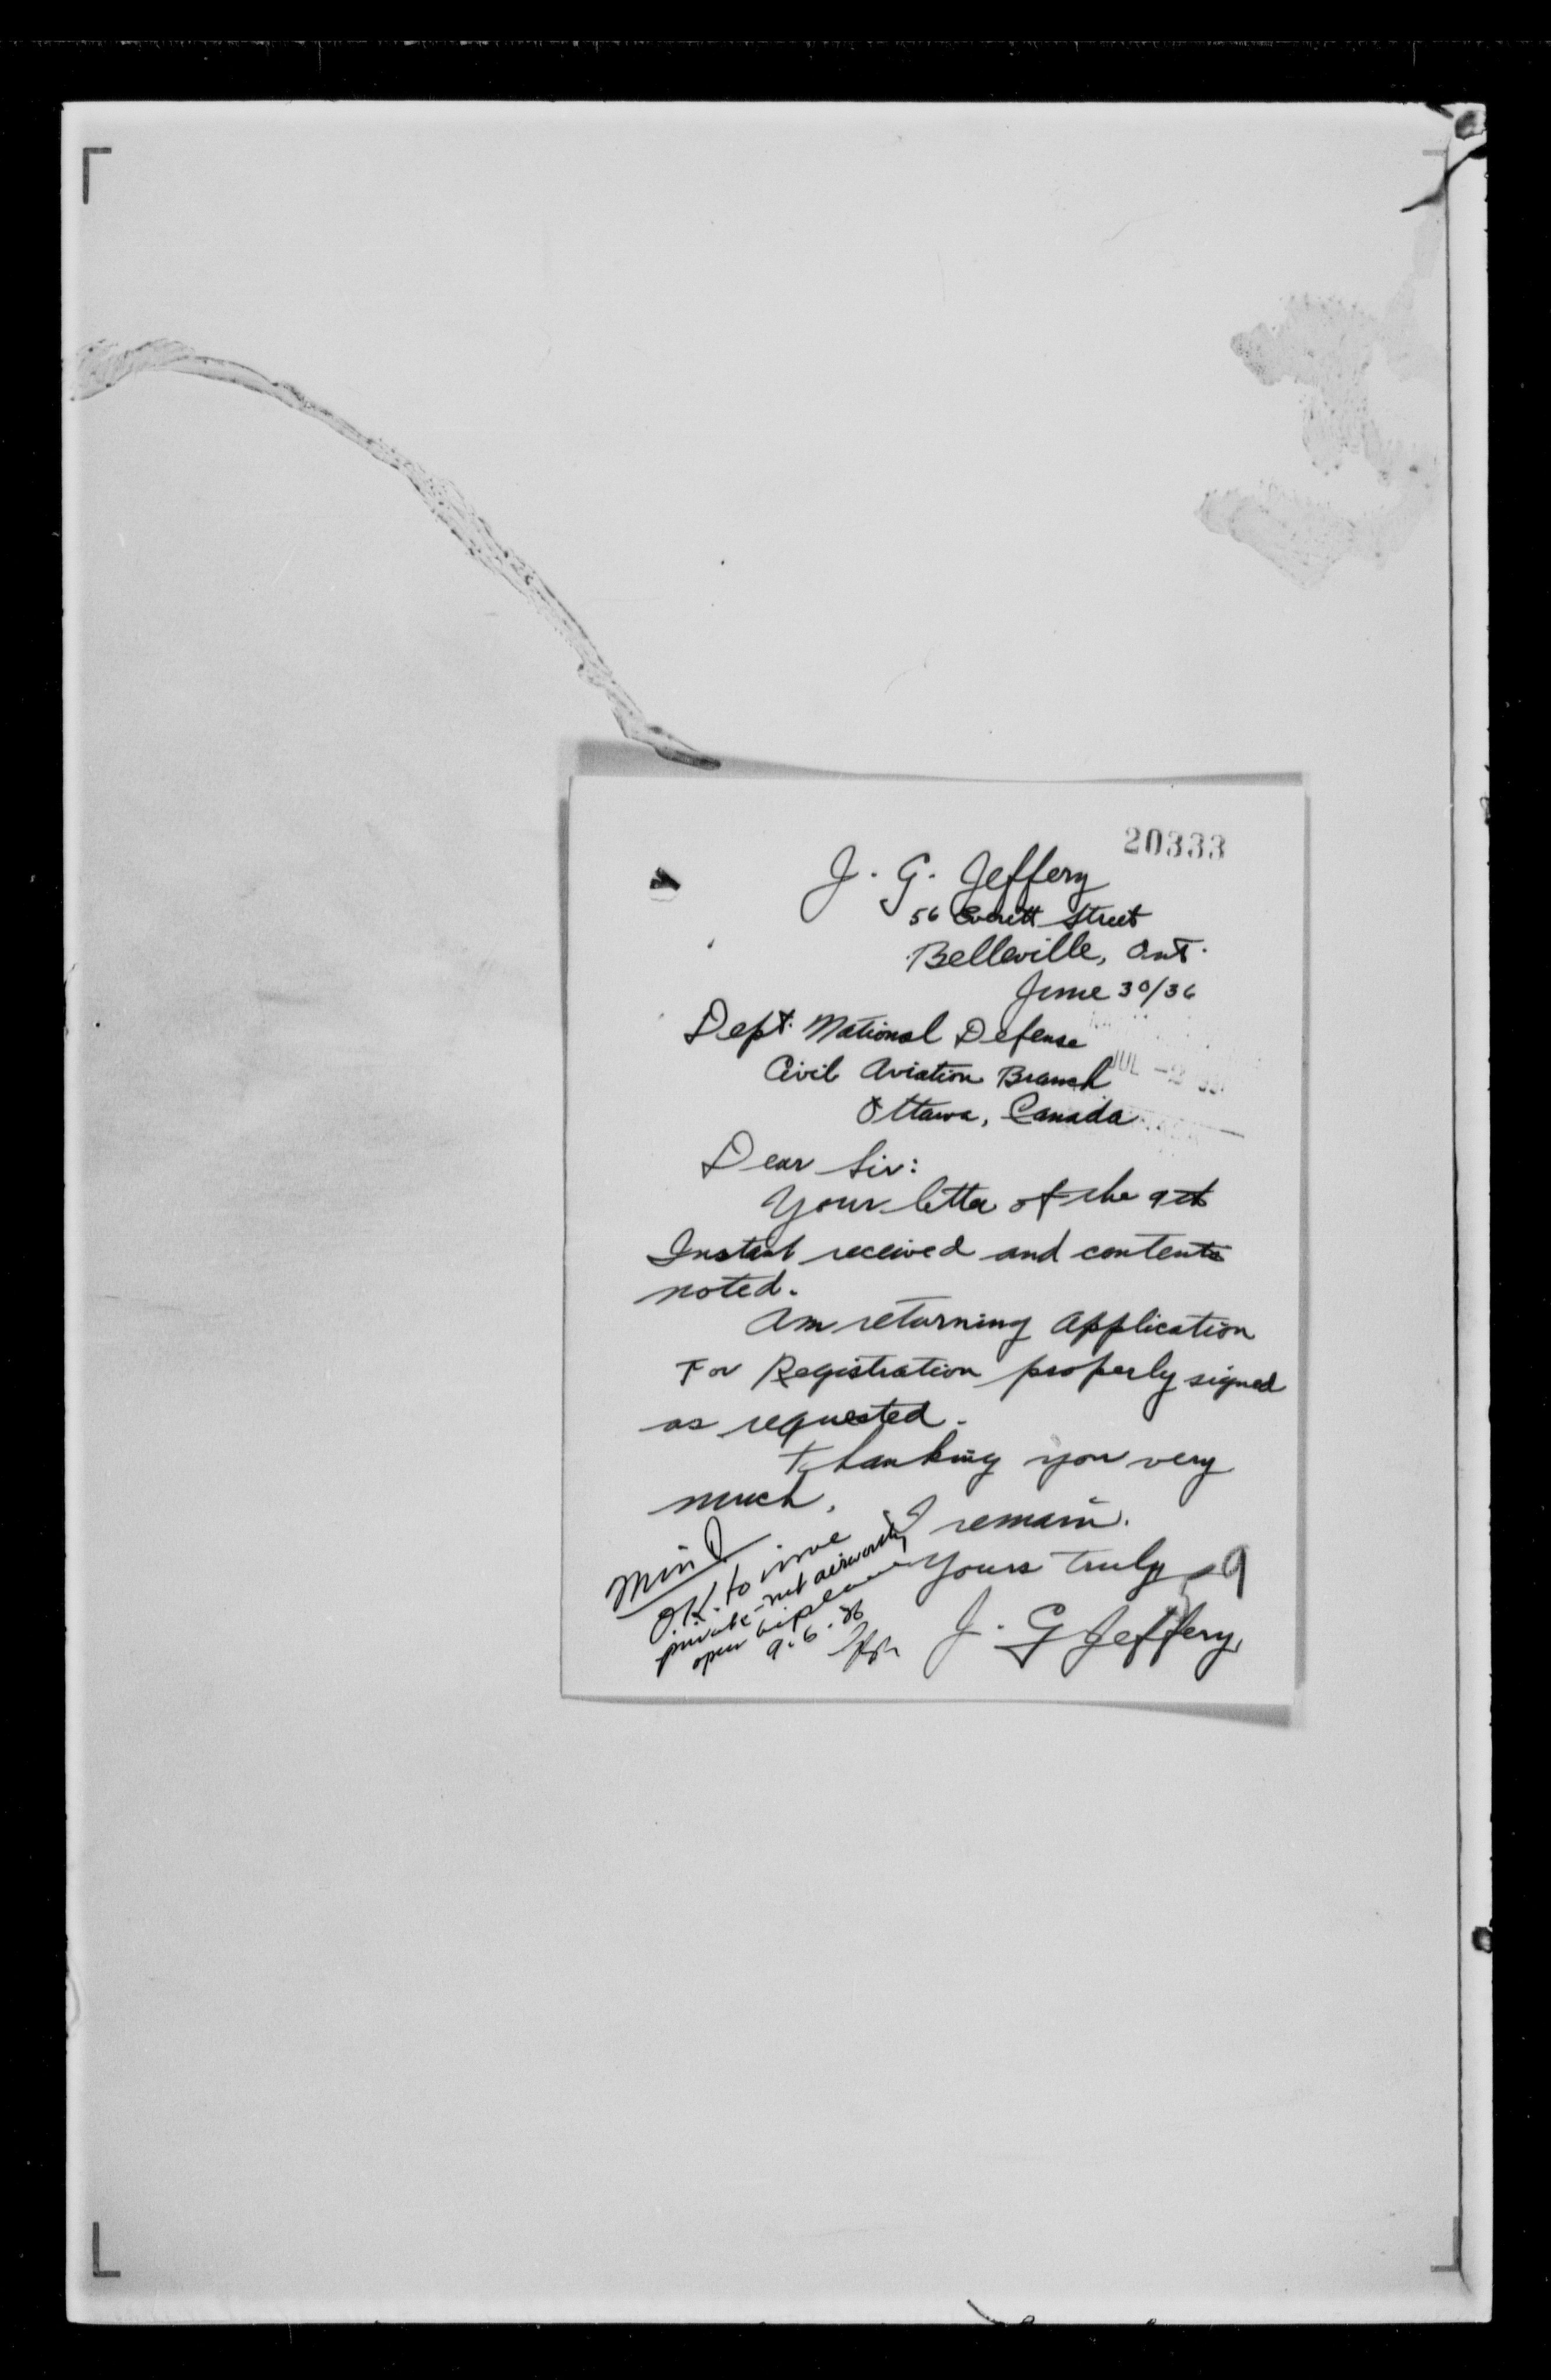 20333
J. G. Jeffery
56 Everett Street
Belleville, Ont.
June 30/36
Dept. National Defense
Civil Aviation Branch
JUL -2
Ottawa, Canada
Dear Sir:
Your letter of the 9th
Instant received and contents
noted.
Am returning Application
For Registration properly signed
as requested.
Thanking you very
much,
I remain.
Yours truly
J. G Jeffery,
O.K. to issue
private - not airworthy
open biplane
9.6.36
9